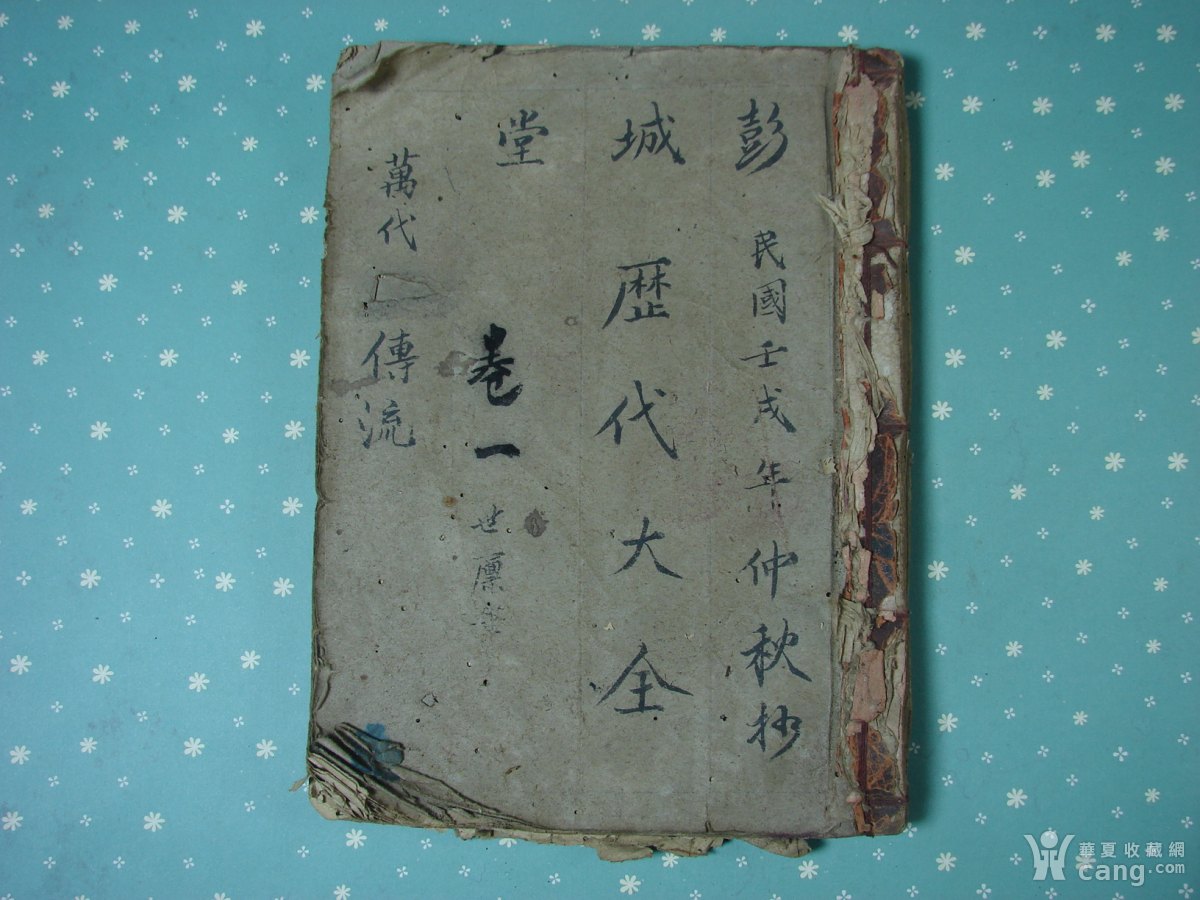 彭 民國壬戌年仲秋抄
城 歷代大全
堂 卷一 世
萬代 傳流
華夏收藏網
cang.com